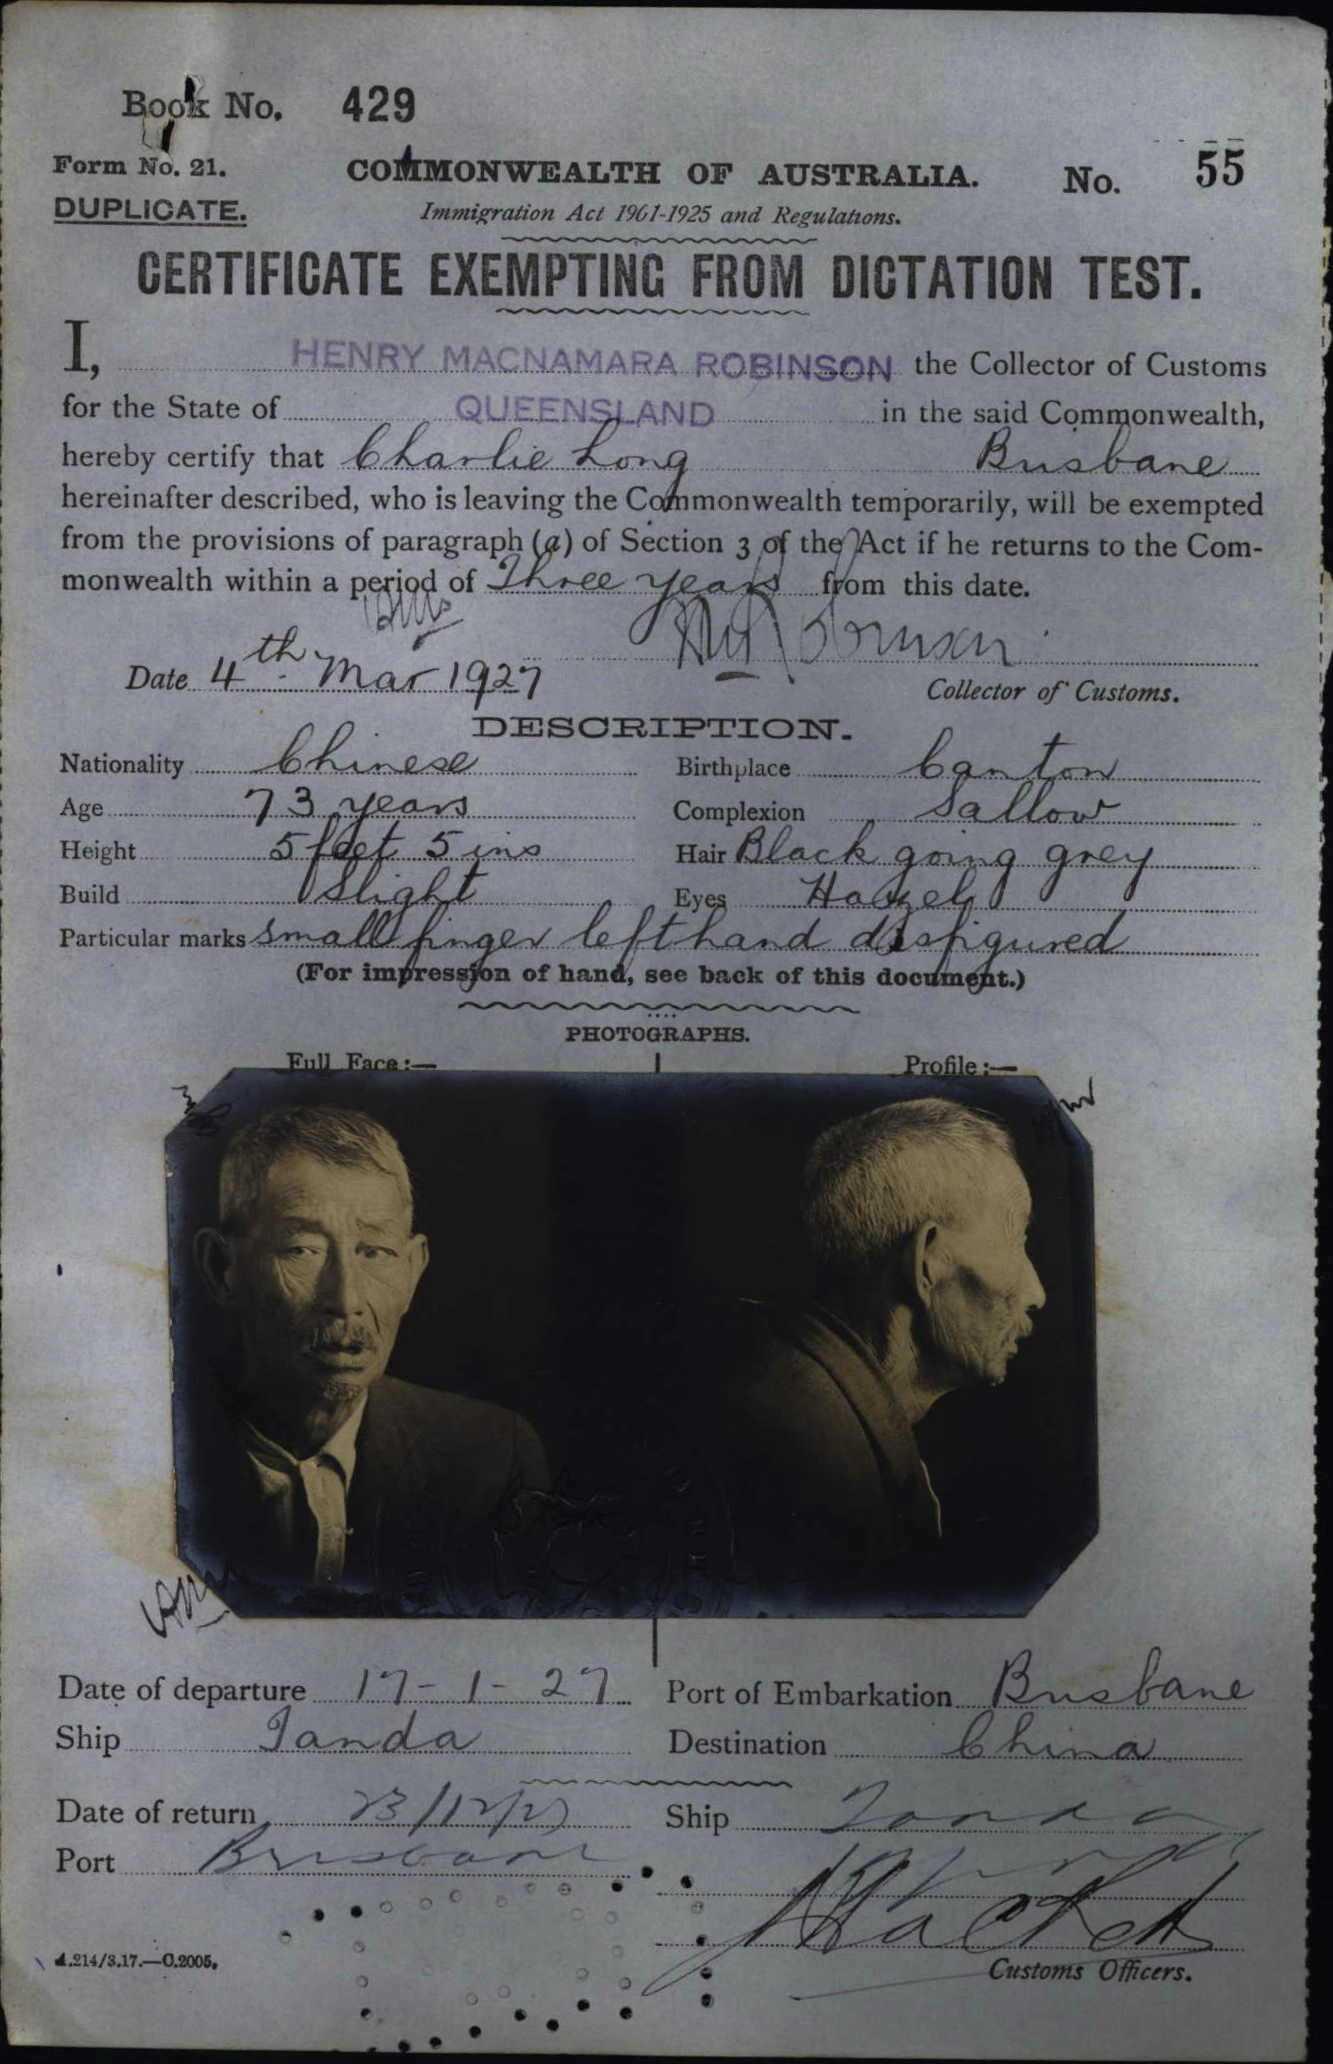 Book No. 429
Form No. 21. COMMONWEALTH OF AUSTRALIA. No. 55
DUPLICATE. Immigration Act 1901-1925 and Regulations.
CERTIFICATE EXEMPTING FROM DICTATION TEST.
I, HENRY MACNAMARA ROBINSON the Collector of Customs
for the State of QUEENSLAND in the said Commonwealth,
hereby certify that Charlie Long Brisbane
hereinafter described, who is leaving the Commonwealth temporarily, will be exempted
from the provisions of paragraph (a) of Section 3 of the Act if he returns to the Com-
monwealth within a period of Three years from this date.
Date 4th Mar 1927
Collector of Customs.
DESCRIPTION.
Nationality Chinese Birthplace Canton
Age 73 years Complexion Sallow
Height 5 feet 5 ins Hair Black going grey
Build Slight Eyes Hazel
Particular marks small finger left hand disfigured
(For impression of hand, see back of this document.)
PHOTOGRAPHS.
Full Face:— Profile:—
Date of departure 17-1-27 Port of Embarkation Brisbane
Ship Tanda Destination China
Date of return 23/12/27 Ship Tanda
Port Brisbane
A.214/3.17.—C.2005. Customs Officers.